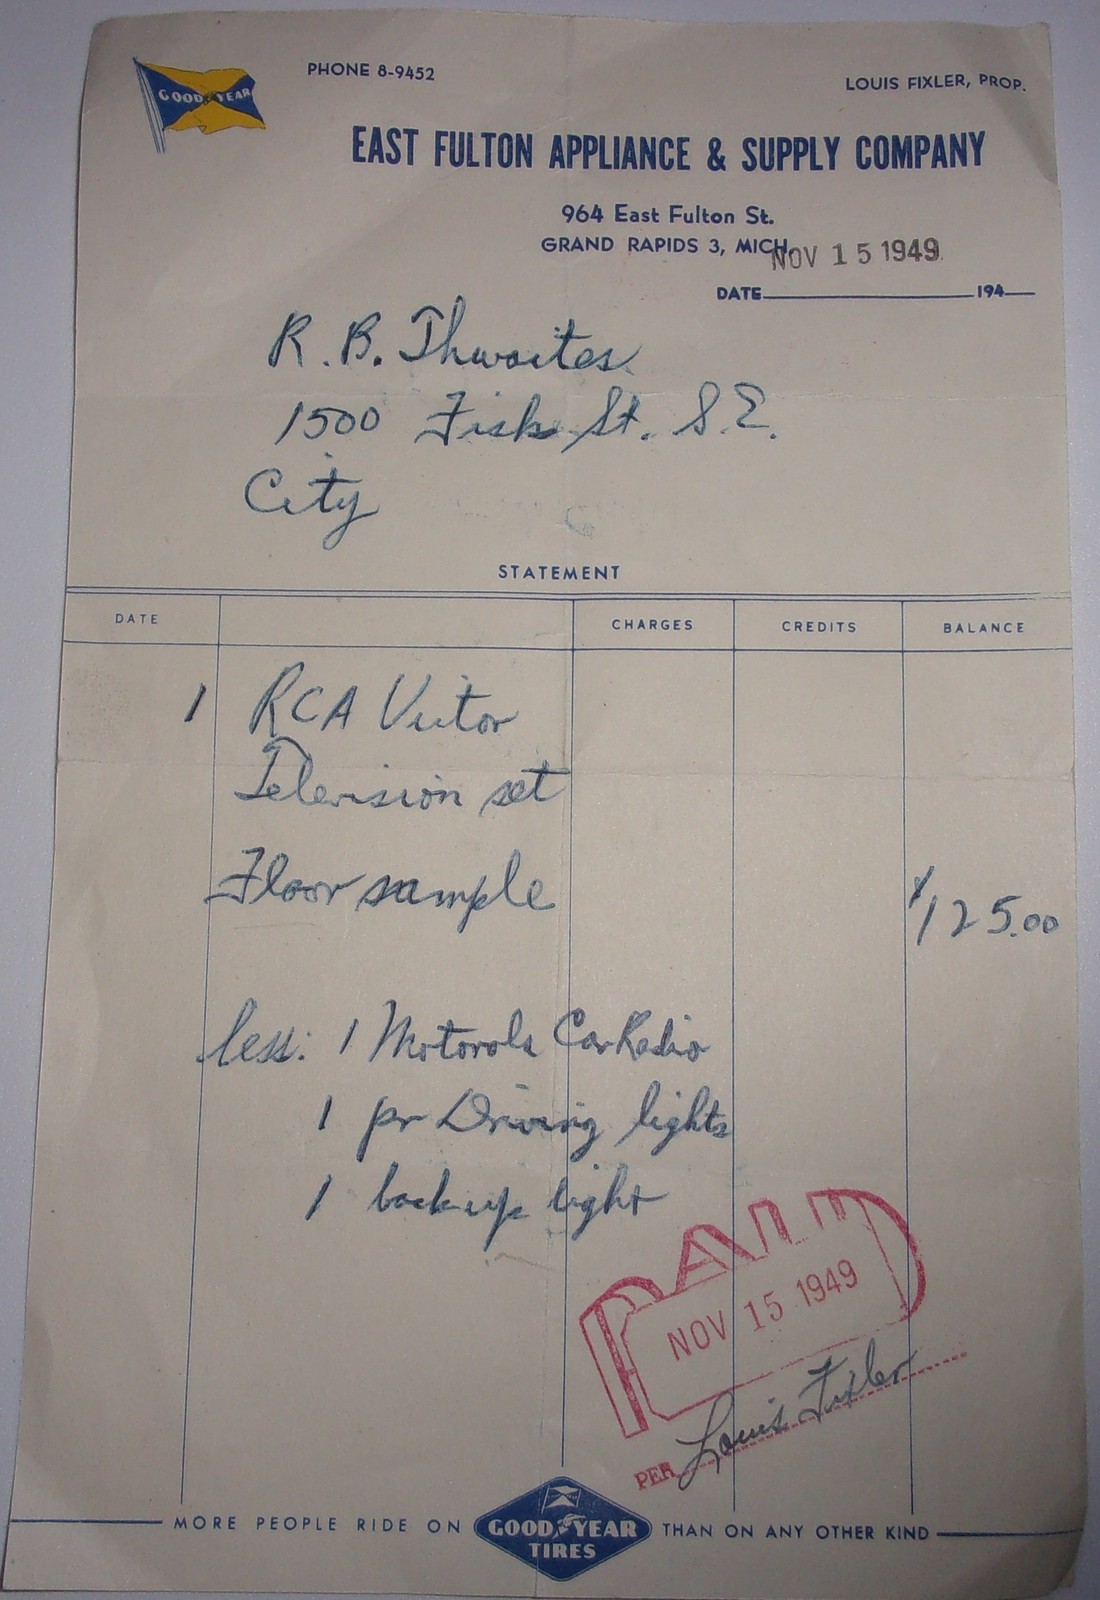 GOOD YEAR
PHONE 8-9452
LOUIS FIXLER, PROP.
EAST FULTON APPLIANCE & SUPPLY COMPANY
964 East Fulton St.
GRAND RAPIDS 3, MICH.
NOV 15 1949
DATE 194
R. B. Thwaites
1500 Fisk St. S.E.
City
STATEMENT
DATE CHARGES CREDITS BALANCE
1 RCA Victor
Television set
Floor sample $125.00
less: 1 Motorola Car Radio
1 pr Driving lights
1 back up light
PAID
NOV 15 1949
PER Louis Fixler
MORE PEOPLE RIDE ON GOOD YEAR TIRES THAN ON ANY OTHER KIND